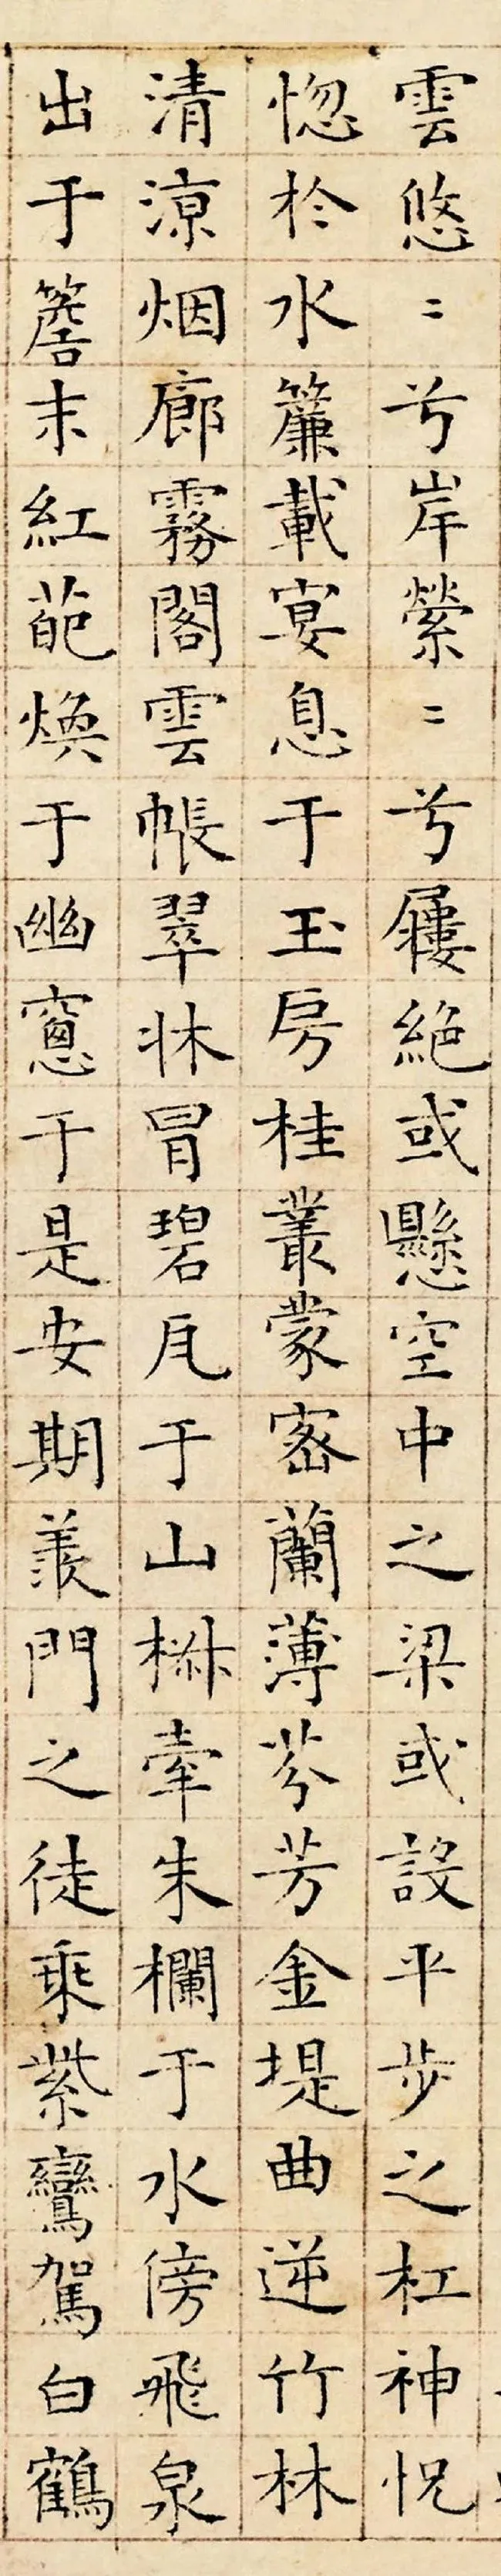 雲悠〻兮岸縈〻兮屨絕或懸空中之梁或設平步之杠神怳
惚於水簾載宴息于玉房桂叢蒙密蘭薄芬芳金堤曲逆竹林
清涼烟廊霧閣雲帳翠牀冒碧瓦于山椒牽朱欄于水傍飛泉
出于簷末紅葩煥于幽窻于是安期羨門之徒乘紫鸞駕白鶴